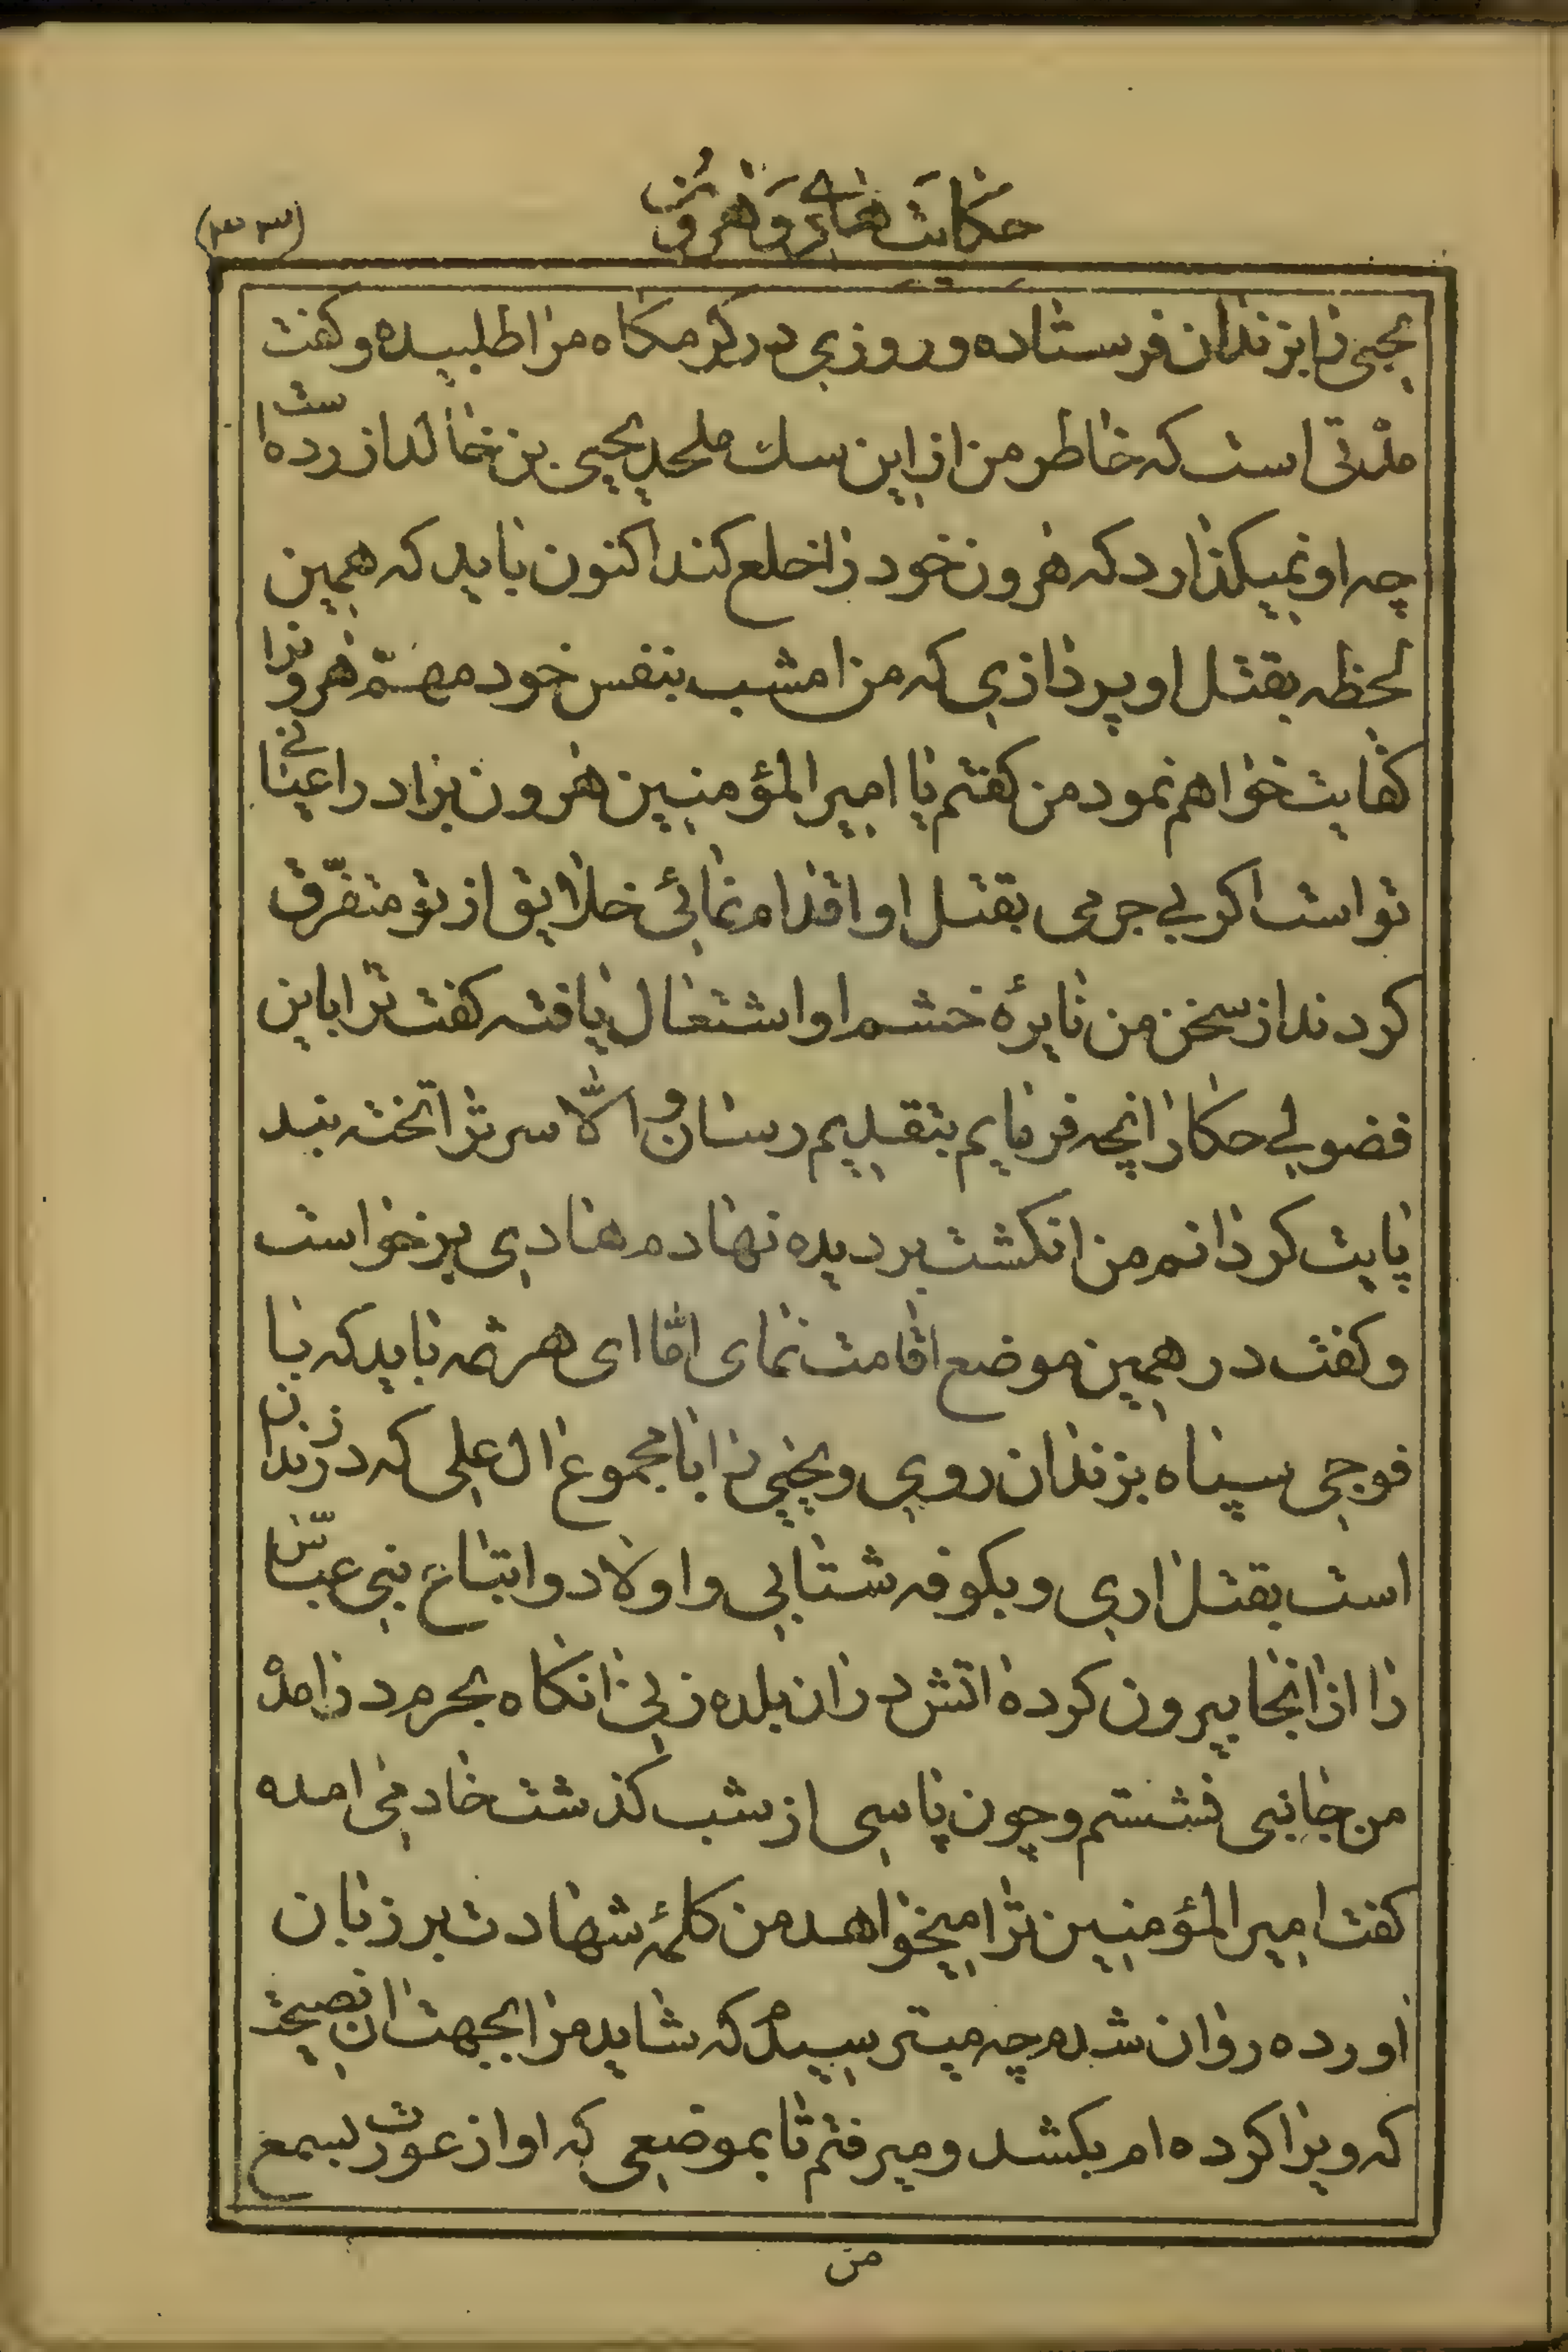 حکایت هادی و هرون
(۳۳)
یحیی را بزندان فرستاده و روزی در کرمکاه مرا طلبیده و کفت
مدتی است که خاطر من از این سک ملحد یحیی بن خالد ازرده است
چه او نمیکذارد که هرون خود را خلع کند اکنون باید که همین
لحظه بقتل او پردازی که من امشب بنفس خود مهمّ هرون را
کفایت خواهم نمود من کفتم یا امیر المؤمنین هرون برادر اعیانی
تو است اکر بی جرمی بقتل او اقدام نمائی خلایق از تو متفرّق
کردند از سخن من نایرهٔ خشم او اشتعال یافته کفت ترا باین
فضولی حکار انچه فرمایم بتقدیم رسان و الّا سر ترا تخته بند
پایت کردانم من انکشت بر دیده نهادم هادی برخواست
و کفت در همین موضع اقامت نمای امّا ای هرثمه باید که با
فوجی سپاه بزندان روی و یحیی را با مجموع ال علی که در زندان
است بقتل اری و بکوفه شتابی و اولاد و اتباع بنی عبّاس
را از انجا بیرون کرده اتش در ان بلده زنی انکاه بحرم در امد
من جانبی نشستم و چون پاسی از شب کذشت خادمی امده
کفت امیر المؤمنین ترا میخواهد من کلمهٔ شهادت بر زبان
اورده روان شدم چه میترسیدم که شاید مرا بجهت ان نصیحت
که ویرا کرده ام بکشد و میرفتم تا بموضعی که اواز عورت بسمع
من